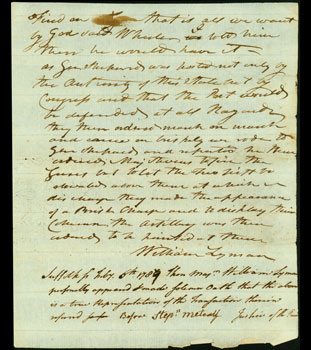 that is all we want
by God said Wheeler we told him
then he would have it
as Gen Shepard was posted not only by
the Authority of this State but of
Congress and that the Post would
be defended at all Hazards
they then ordered march on march
and came on briskly we rode to
Gen Shepard and
ordered Maj Stevens to fire the
Guns but to let the two first be
elevated above them at which
discharge they made the appearance
of a Charge and to display their
Column the Artillery was then
ordered to be pointed at them
William Lyman
Suffolk ss Feby 1787 then Majr William Lyman
personally appeared & made solemn Oath that the above
is a true Representation of the Transaction therein
referred Before Stepn Metcalf Justice of the